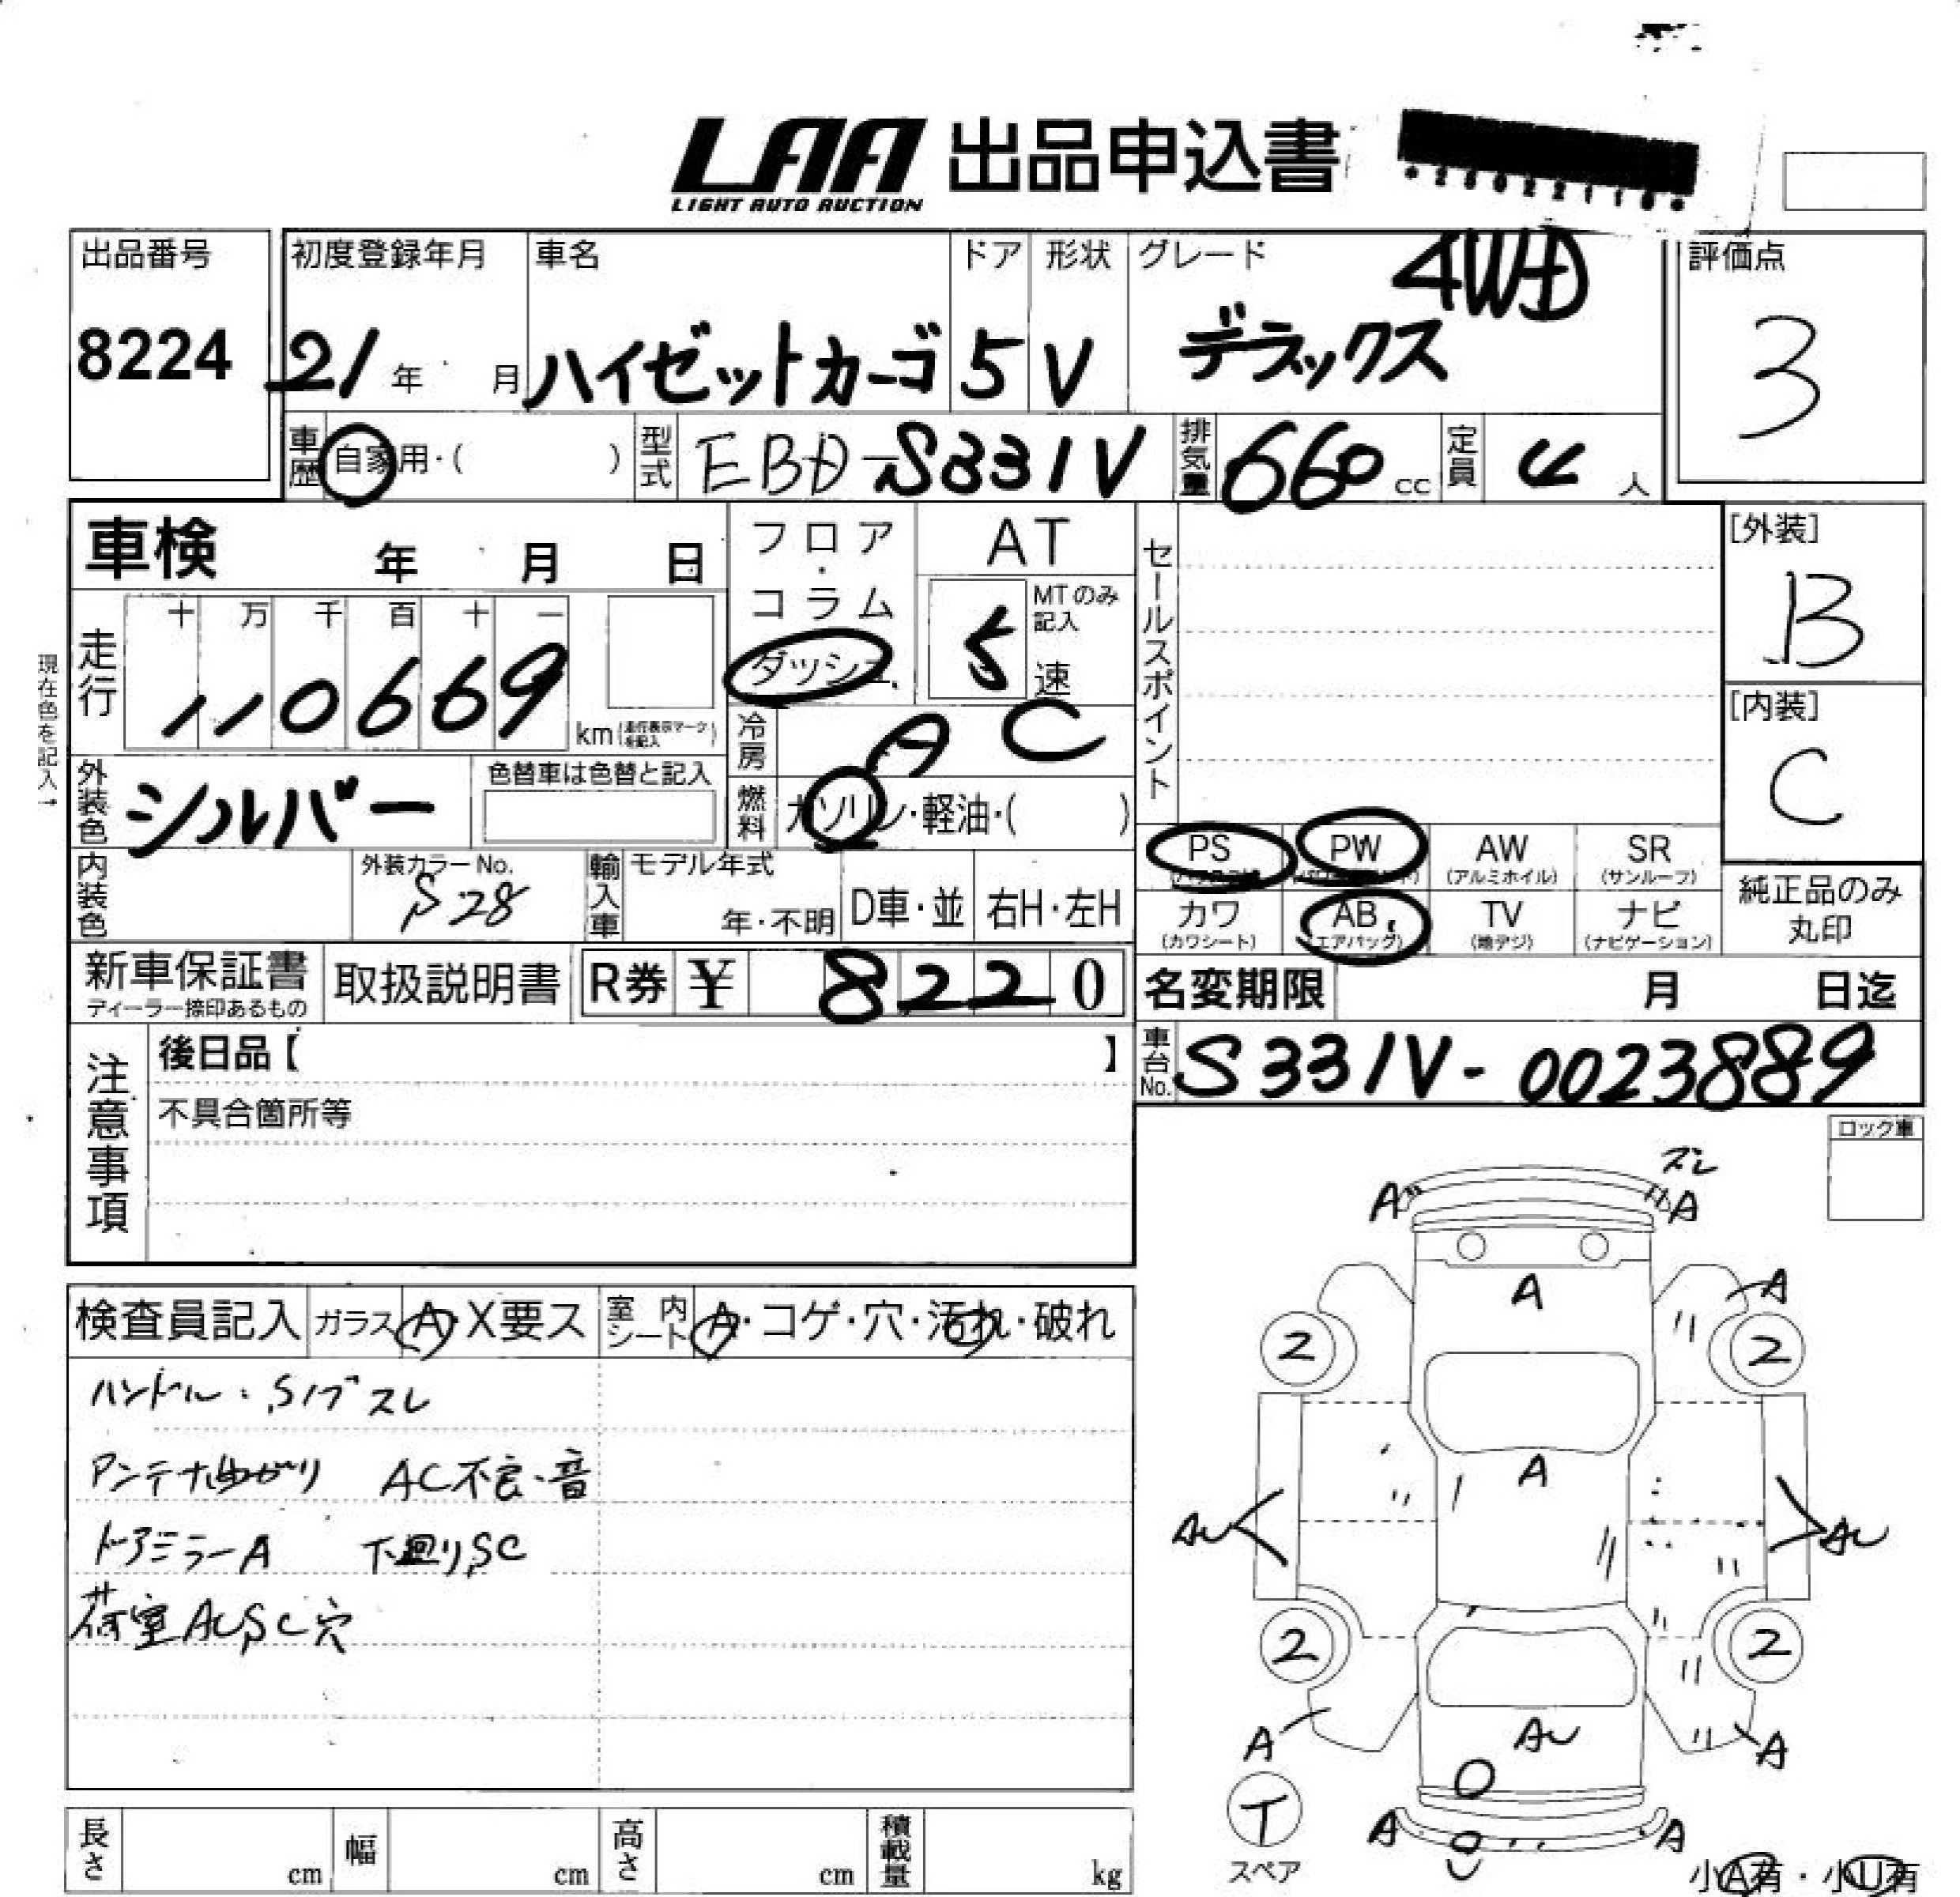 LAA 出品申込書
LIGHT AUTO AUCTION
出品番号
8224
初度登録年月
21年 月
車名
ハイゼットカーゴ
ドア
5
形状
V
グレード
4WD
デラックス
評価点
3
車歴 自家用・( )
型式 EBD-S331V
排気量 660 cc
定員 4 人
車検 年 月 日
フロア・コラム
ダッシュ
AT
MTのみ記入
5 速
セールスポイント
[外装]
B
[内装]
C
現在色を記入→
走行
十 万 千 百 十 一
110669
km(走行表示マークを記入)
冷房 AC
外装色 シルバー
色替車は色替と記入
燃料 ガソリン・軽油・( )
PS
PW
AW (アルミホイル)
SR (サンルーフ)
カワ (カワシート)
AB (エアバッグ)
TV (地デジ)
ナビ (ナビゲーション)
純正品のみ丸印
内装色
外装カラーNo.
S28
輸入車
モデル年式
年・不明
D車・並
右H・左H
新車保証書
ディーラー捺印あるもの
取扱説明書
R券 ¥ 8220
名変期限 月 日迄
車台No. S331V-0023889
注意事項
後日品【 】
不具合箇所等
ロック車
検査員記入 ガラス A・X要ス 室内シート A・コゲ・穴・汚れ・破れ
ハンドル:Sノブスレ
アンテナ曲がり AC不良・音
ドアミラーA 下廻りSC
荷室AUSC穴
ズレ
A A
A
A
2 2
A
AU AU
2 2
AU
A A
T
スペア
A A
長さ cm 幅 cm 高さ cm 積載量 kg
小A有・小U有